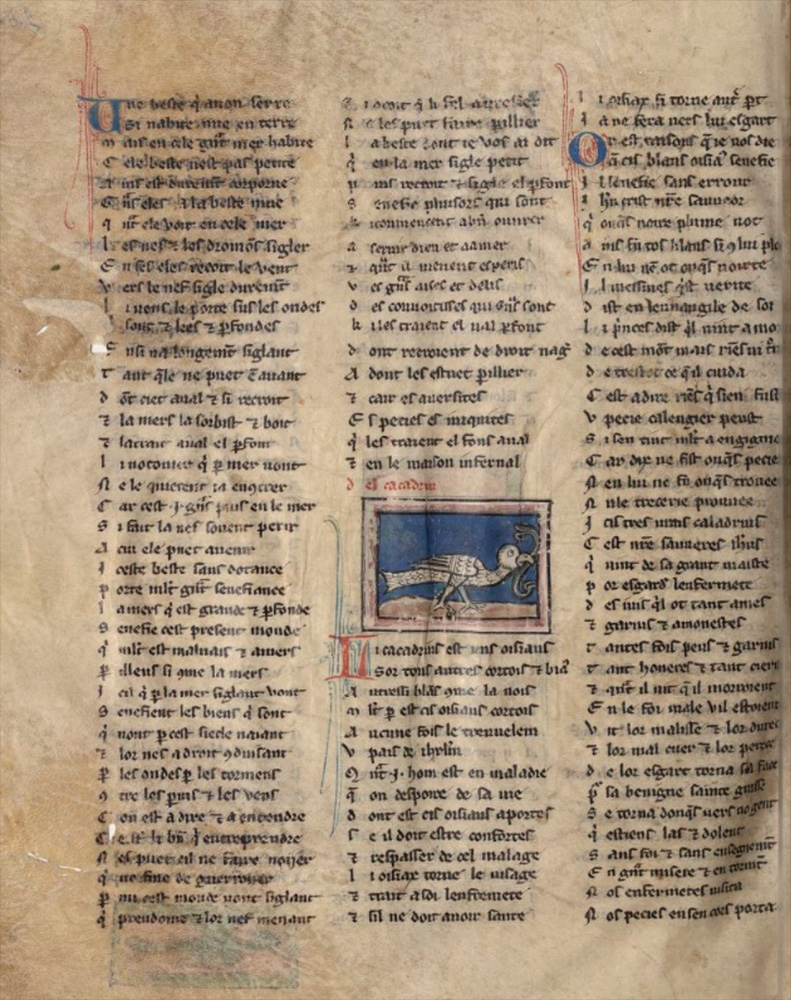 Une beste q̄ a non serre
Si nabite mie en terre
m ais en cele gūt mer habite
C ele beste nest pas petite
A ins est durem̄t corporue
G̃ns eles a la beste mue
q̄ nt ele voit en cele mer
L es nes ⁊ les dromōs sigler
E n ses eles recoit le vent
V ers le nef sigle durem̄t
l i uens le porte sus les ondes
sont ⁊ lees ⁊ ꝑfondes
E nsi ua longem̄t siglant
T ant q̄le ne puet auant
d ōt ciet aual ⁊ si recoit
⁊ la mers la sorbist ⁊ boit
⁊ latrait aual el ꝑfont
l i notonier q̄ ꝑ mer uont
N e le quierent ia encōtrer
C ar cest ·j· gñs ꝑius en le mer
S i fait la nes souent perir
A cui ele puet auenir
I ceste beste sans dotance
p orte mlt gñt senefiance
l a mers q̄ est grande ⁊ ꝑfonde
S enefie cest present monde
q̄ mlt est maluais ⁊ amers
ꝑ illeus si ꝯme la mers
I cil q̄ ꝑ la mer siglant uont
S enefient les biens q̄ sont
q̄ uont ꝑ cest siecle naiant
⁊ lor nes a droit ꝯduisant
ꝑ les ondes ꝑ les tormens
ꝯ tre les ꝑius ⁊ les uens
C on est a dire ⁊ a entendre
N es puet cil ne faire noijer
q̄ ne fine de guerroijer
ꝑ mi cest monde uont siglant
q̄ preudome ⁊ lor nef menant
l a beste dont ie vos ai dit
q̄ en la mer sigle petit
p uis recroit ⁊ sigle el ꝑfont
S enefie pluisors qui sont
k i comencent a bn̄ ouurer
a seruir dieu et a amer
⁊ qn̄t il uienent es perils
V es gñs aises et delis
d es conuoitises qui gñs sont
k i les traient el ual ꝑfont
d ont recroient de droit nag̃
A dont les estuet ꝑillier
⁊ cair es auersites
E s pecies et iniquites
q̄ les traient el fons aual
⁊ en le maison infernal
d el cacadriu
Li cacadrius est uns oisiaus
Sor tous autres cortois ⁊ biaˀ
A utresi blās ꝯme la nois
m lt ꝑ est cis oisiaus cortois
A ucune fois le treuuelem
V pais de ihrlm̄
Q n̄t ·j· hom est en maladie
q̄ on despoire de sa uie
d ont est cis oisiaus aportes
S e il doit estre confortes
⁊ respasser de cel malage
l i oisiax torne le uisage
⁊ trait a soi lenfermete
⁊ sil ne doit auoir sante
l i oisiax si torne aut̄ ꝑt
I a ne fera uers lui esgart
Or est raisons q̄ ie vos die
q̄ cis blans oisiaˀ senefie
I l senefie sans errour
I hu crist nr̄e sauueor
q̄ onq̄s noire plume not
a ins fu tos blans si ꝯ lui plot
E n lui nē ot onq̄s noirte
I l meismes q̄st uerite
d ist en leuuangile de soi
l i p̄nces dist q̄l uint a moi
d e cest mōt mais riēs ni
d e trestot ce q̄il cuida
C est a dire riēs q̄ sien fust
V pecie calengier peust
S i sen uint mlt a engigne
C ar dix ne fist onq̄s pecie
N en lui ne fu onq̄s trouee
N ule trecerie prouuee
I cis tres urais caladrius
C est nr̄e sauueres ihūs
q̄ uint de sa grant maiste
p or esgarder lenfermete
d es iuis q̄l ot tant ames
⁊ garnis ⁊ amonestes
T antes fois peus ⁊ garnis
T ant honeres ⁊ tant ciers
⁊ qn̄t il uit q̄ il morroient
E n le foi male u il estoient
V it lor malisse ⁊ lor durec
⁊ lor mal cuer ⁊ lor perece
d e lor esgart torna sa face
ꝑ sa benigne sainte grasse
S e torna donq̄s uers no gent
q̄ estiens las ⁊ dolent
S ans foi ⁊ sans enseignem̄t
E n gñt misere ⁊ en torm̄t
N os enfermetes uisita
N os pecies en sen cors porta